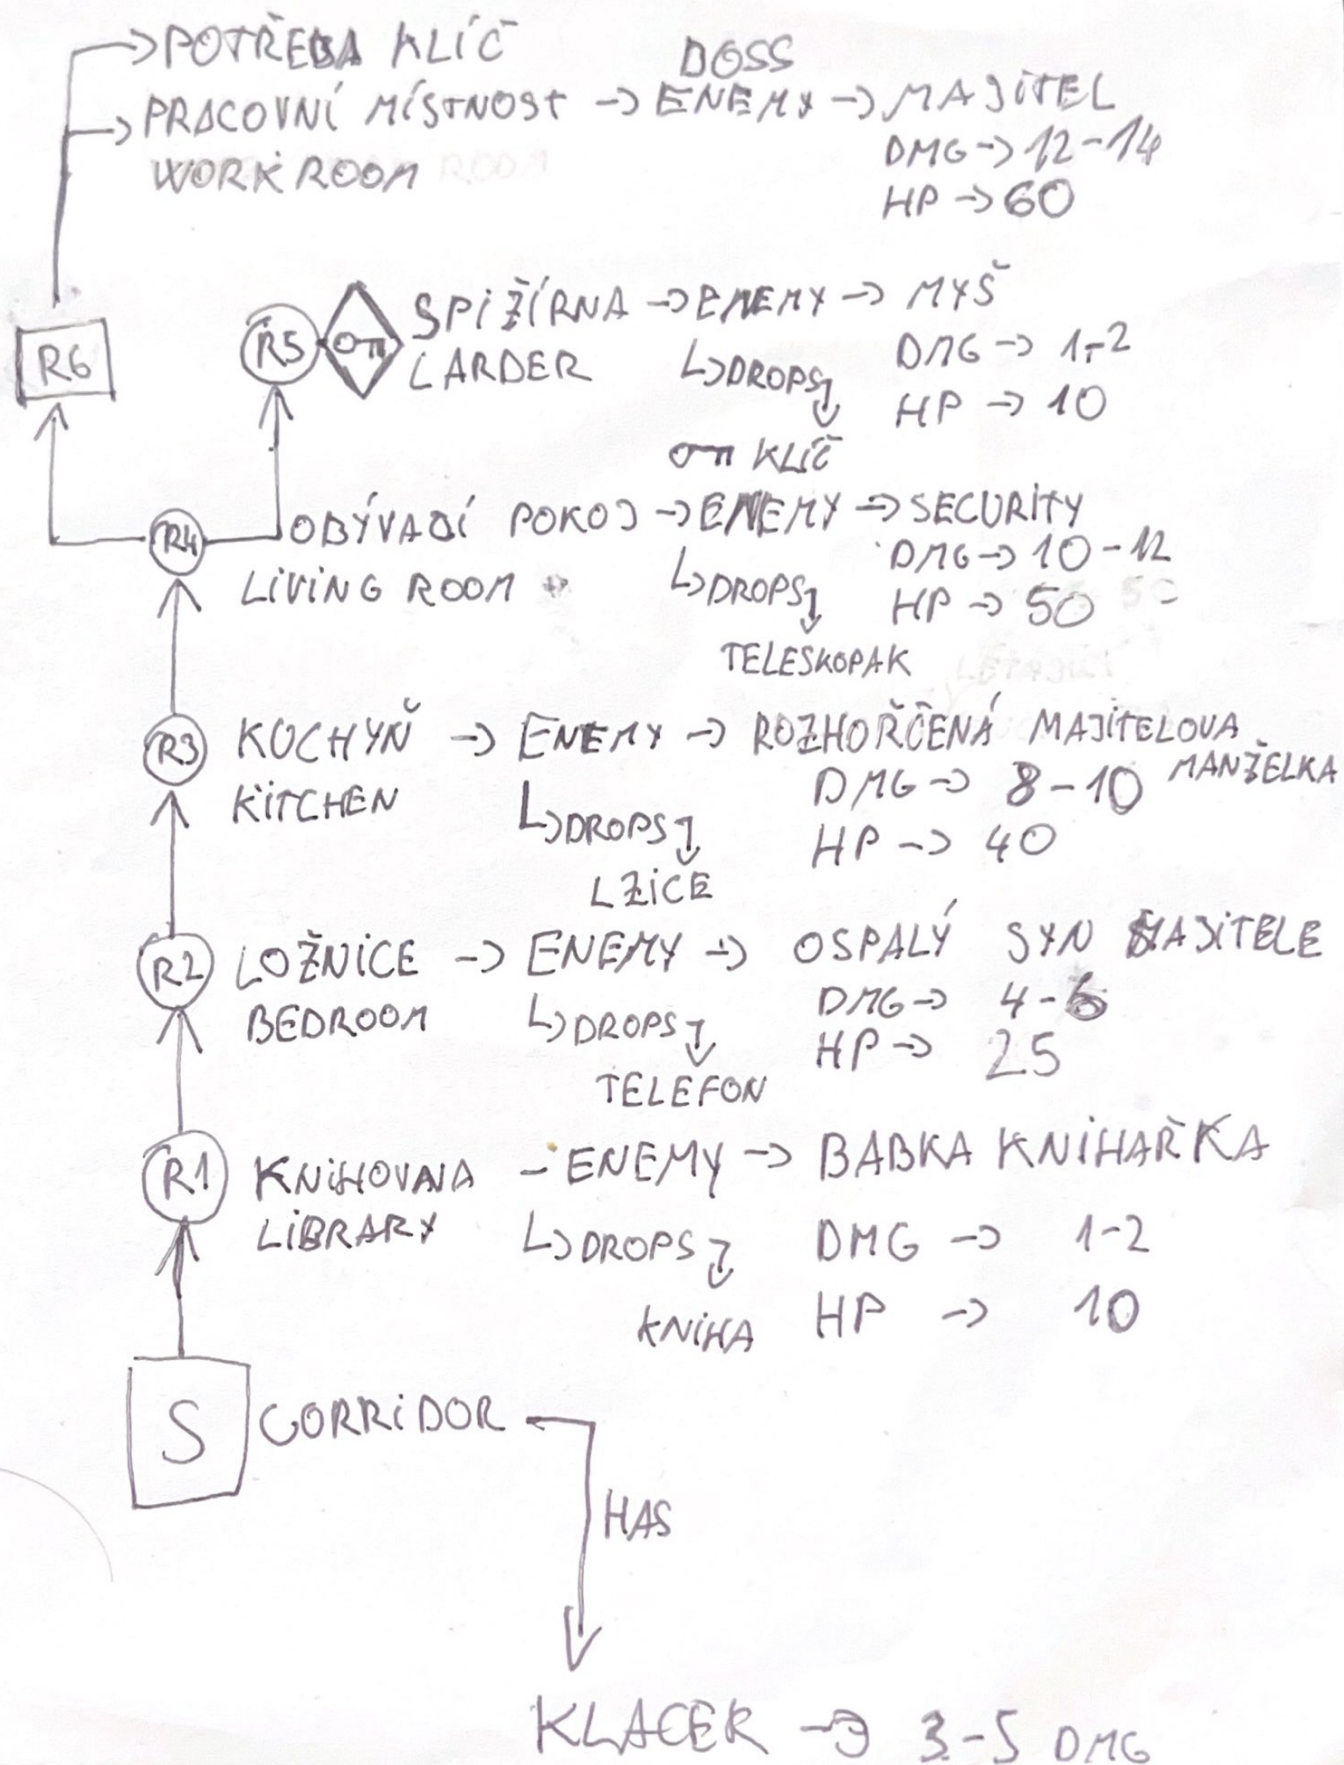 → POTŘEBA KLÍČ
→ PRACOVNÍ MÍSTNOST → BOSS ENEMY → MAJITEL
WORK ROOM
DMG → 12-14
HP → 60
R6
R5 SPIŽÍRNA → ENEMY → MYŠ
LARDER
↳ DROPS
DMG → 1-2
HP → 10
KLÍČ
R4 OBÝVACÍ POKOJ → ENEMY → SECURITY
LIVING ROOM
↳ DROPS
DMG → 10-12
HP → 50
TELESKOPAK
R3 KUCHYŇ → ENEMY → ROZHOŘČENÁ MAJITELOVA
MANŽELKA
KITCHEN
↳ DROPS
DMG → 8-10
HP → 40
LZICE
R2 LOŽNICE → ENEMY → OSPALÝ SYN MAJITELE
BEDROOM
↳ DROPS
DMG → 4-6
HP → 25
TELEFON
R1 KNIHOVNA - ENEMY → BABKA KNIHAŘKA
LIBRARY
↳ DROPS
DMG → 1-2
KNIHA
HP → 10
S CORRIDOR
HAS
KLACEK → 3-5 DMG